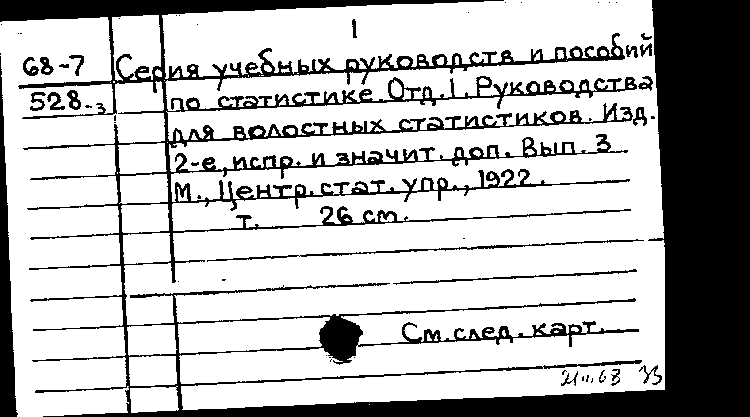 1
68-7 Серия учебных руководств и пособий
528-3 по статистике. Отд. 1. Руководства
для волостных статистиков. Изд.
2-е, испр. и значит. доп. Вып. 3
М., Центр. стат. упр., 1922.
т. 26 см.
См. след. карт.